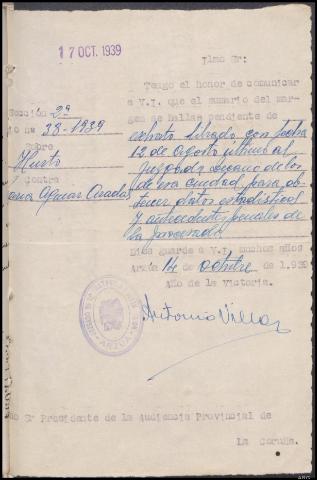 17 OCT. 1939
Ilmo Sr:
Tengo el honor de comunicar
a V.I. que el sumario del mar-
gen se hallas pendiente de
exhorto librado con fecha
12 de Agosto último al
Juzgado decano de los
de esa ciudad, para ob-
tener datos estadisticos
y antecedentes penales de
la procesada
Dios guarde a V.I. muchos años
Arzúa 14 de octubre de 1.939
Año de la Victoria.
Sección 2ª
nº 38-1939
Sobre
Hurto
Contra
Aguiar
ARZUA
Antonio
Sr Presidente de la Audiencia Provincial de
La Coruña.